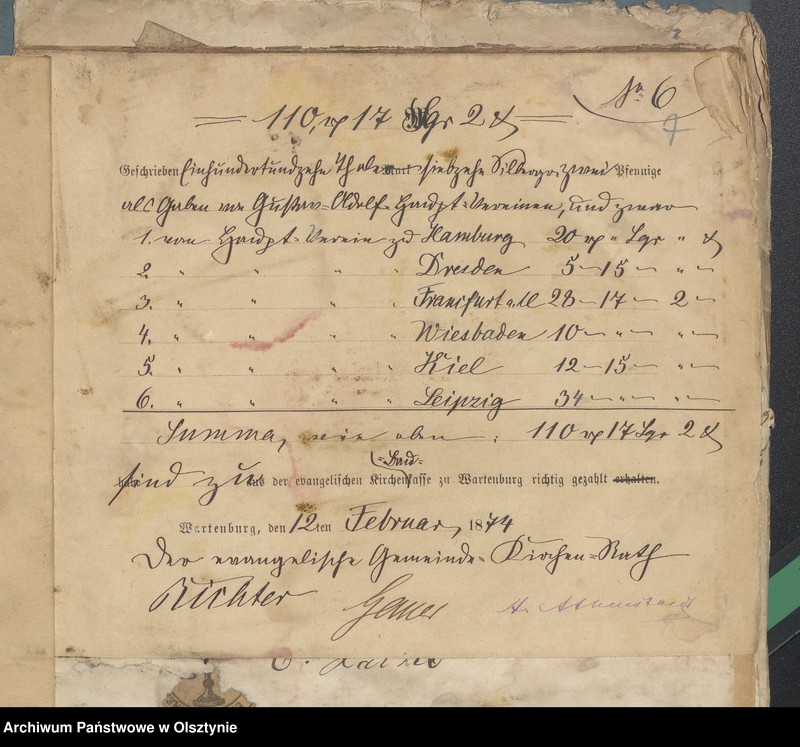 No 6
7
110 rp 17 Sgr 2 ₰
Geschrieben Einhundertundzehn Thaler Mark siebzehn Silbergr. zwei Pfennige
als Gaben von Gustav-Adolf-Haupt-Vereinen, und zwar
1. vom Haupt-Verein zu Hamburg 20 rp " Sgr " ₰
2. " " " " Dresden 5 — 15 — " —
3. " " " " Frankfurt a.M 28 — 17 — 2 —
4. " " " " Wiesbaden 10 — " — " —
5. " " " " Kiel 12 — 15 — " —
6. " " " " Leipzig 34 — " — " —
Summa, wie oben : 110 rp 17 Sgr 2 ₰
-Bau-
sind zu aus der evangelischen Kirchenkasse zu Wartenburg richtig gezahlt erhalten.
Wartenburg, den 12ten Februar, 1874
Der evangelische Gemeinde-Kirchen-Rath
Richter
Archiwum Państwowe w Olsztynie